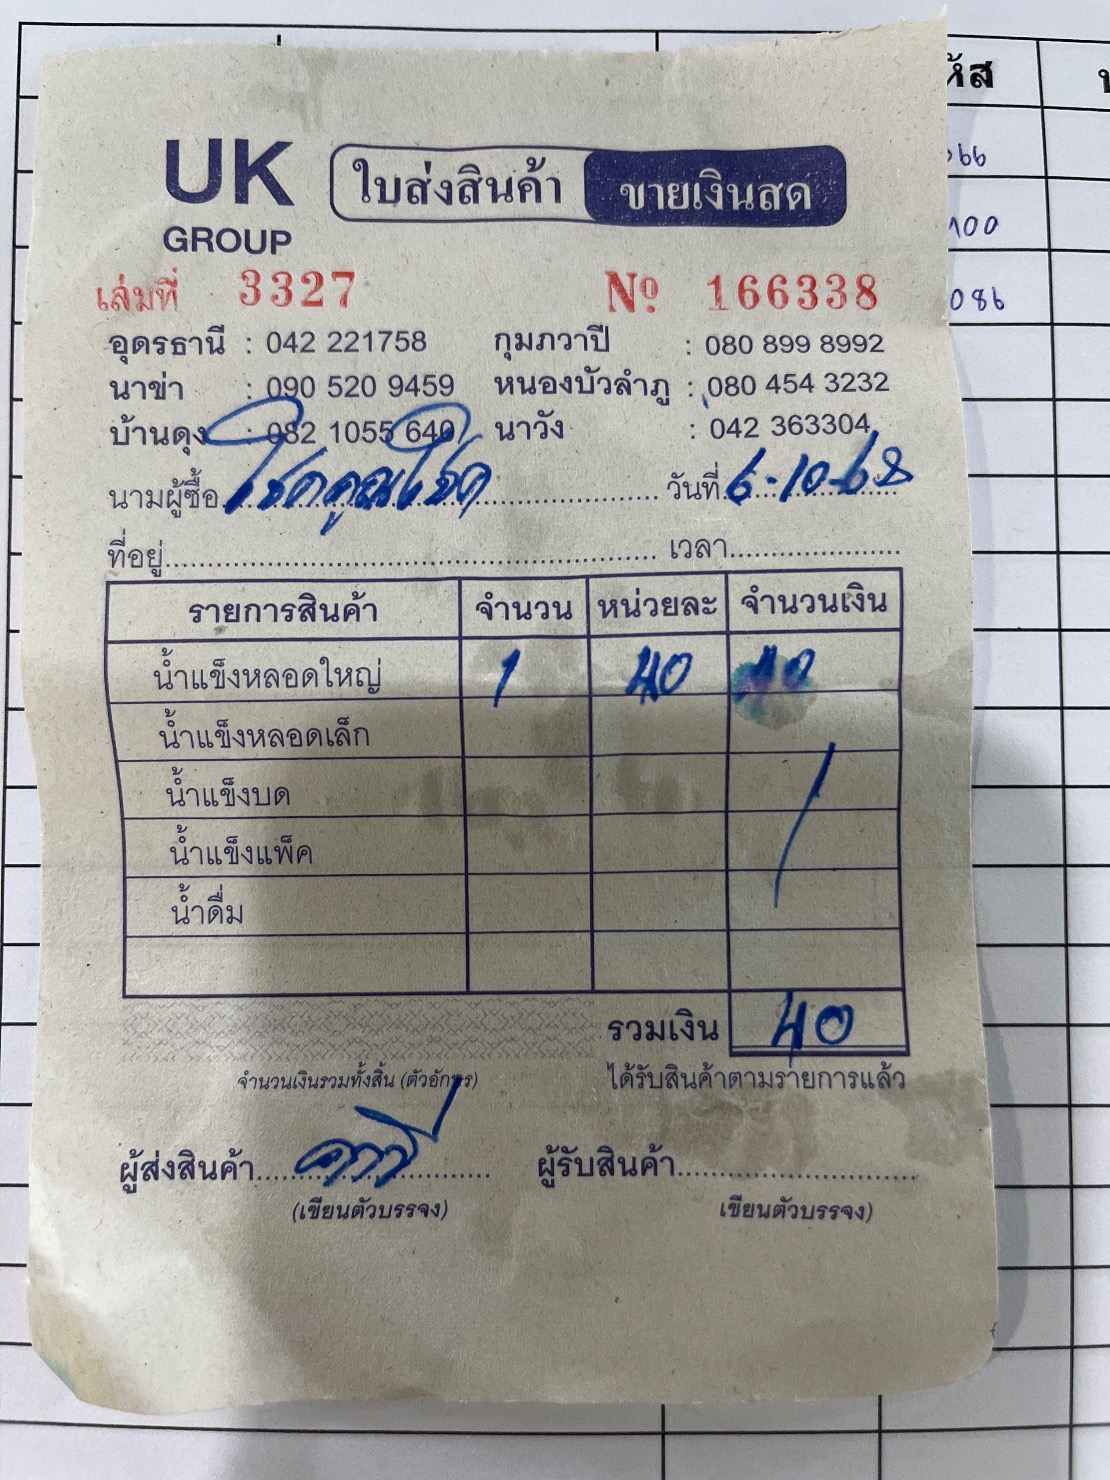 UK
GROUP
ใบส่งสินค้า ขายเงินสด
เล่มที่ 3327 № 166338
อุดรธานี : 042 221758 กุมภวาปี : 080 899 8992
นาข่า : 090 520 9459 หนองบัวลำภู : 080 454 3232
บ้านดุง : 082 1055 640 นาวัง : 042 363304
นามผู้ซื้อ โชคคูณโชค วันที่ 6-10-68
ที่อยู่ เวลา
รายการสินค้า จำนวน หน่วยละ จำนวนเงิน
น้ำแข็งหลอดใหญ่ 1 40 40
น้ำแข็งหลอดเล็ก
น้ำแข็งบด
น้ำแข็งแพ็ค
น้ำดื่ม
รวมเงิน 40
จำนวนเงินรวมทั้งสิ้น (ตัวอักษร) ได้รับสินค้าตามรายการแล้ว
ผู้ส่งสินค้า ผู้รับสินค้า
(เขียนตัวบรรจง) เขียนตัวบรรจง)
หัส
066
100
086